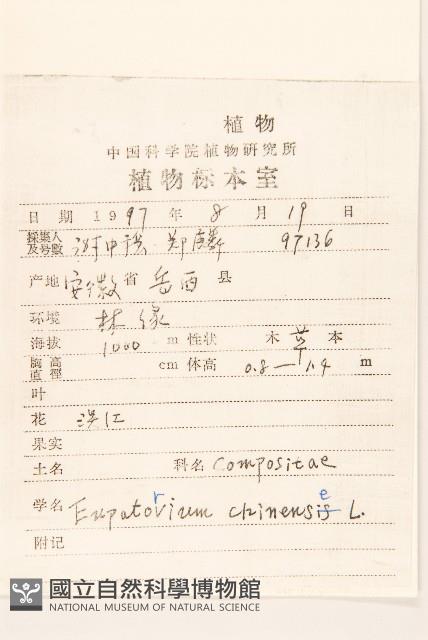 植物
中国科学院植物研究所
植物标本室
日期 1997 年 8 月 19 日
採集人及号數 郑麟 97136
产地 安徽省 岳西县
环境 林缘
海拔 1000 m 性状 木 草 本
胸高直徑 cm 体高 0.8—1.4 m
叶
花 淡红
果实
土名 科名 Compositae
学名 Eupatorium chinense L.
附记
國立自然科學博物館
NATIONAL MUSEUM OF NATURAL SCIENCE